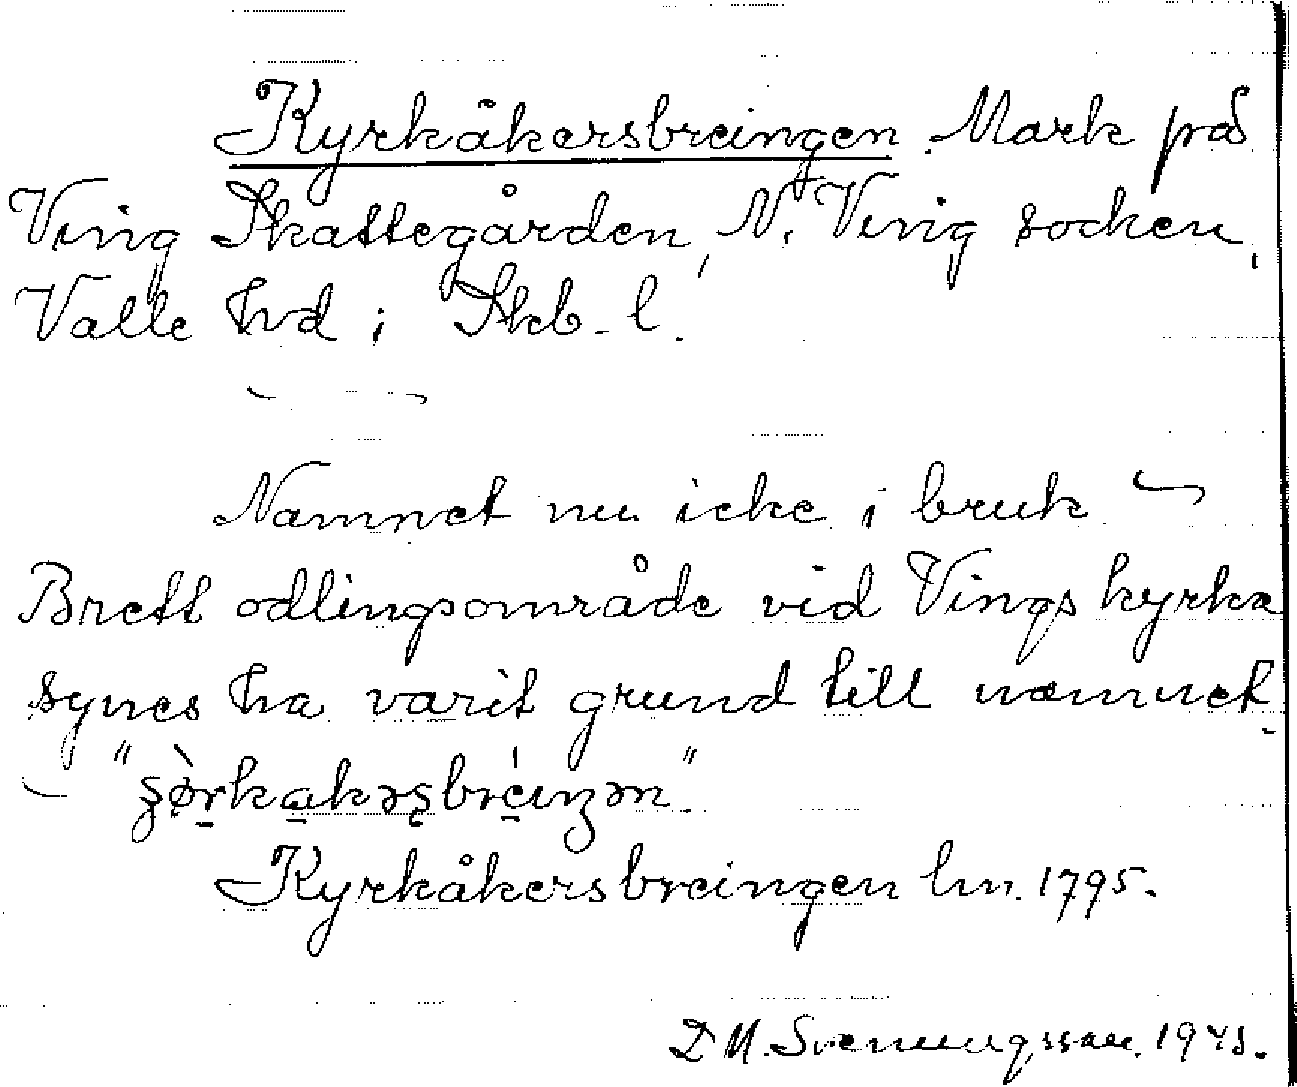 Kyrkåkersbreingen. Mark på
Ving Skattegården, N. Ving socken,
Valle hd i Skb. l.
Namnet nu icke i bruk
Brett odlingsområde vid Vings kyrka
synes ha varit grund till namnet
Kyrkåkersbreingen lm. 1795.
D M. Svenungsson.